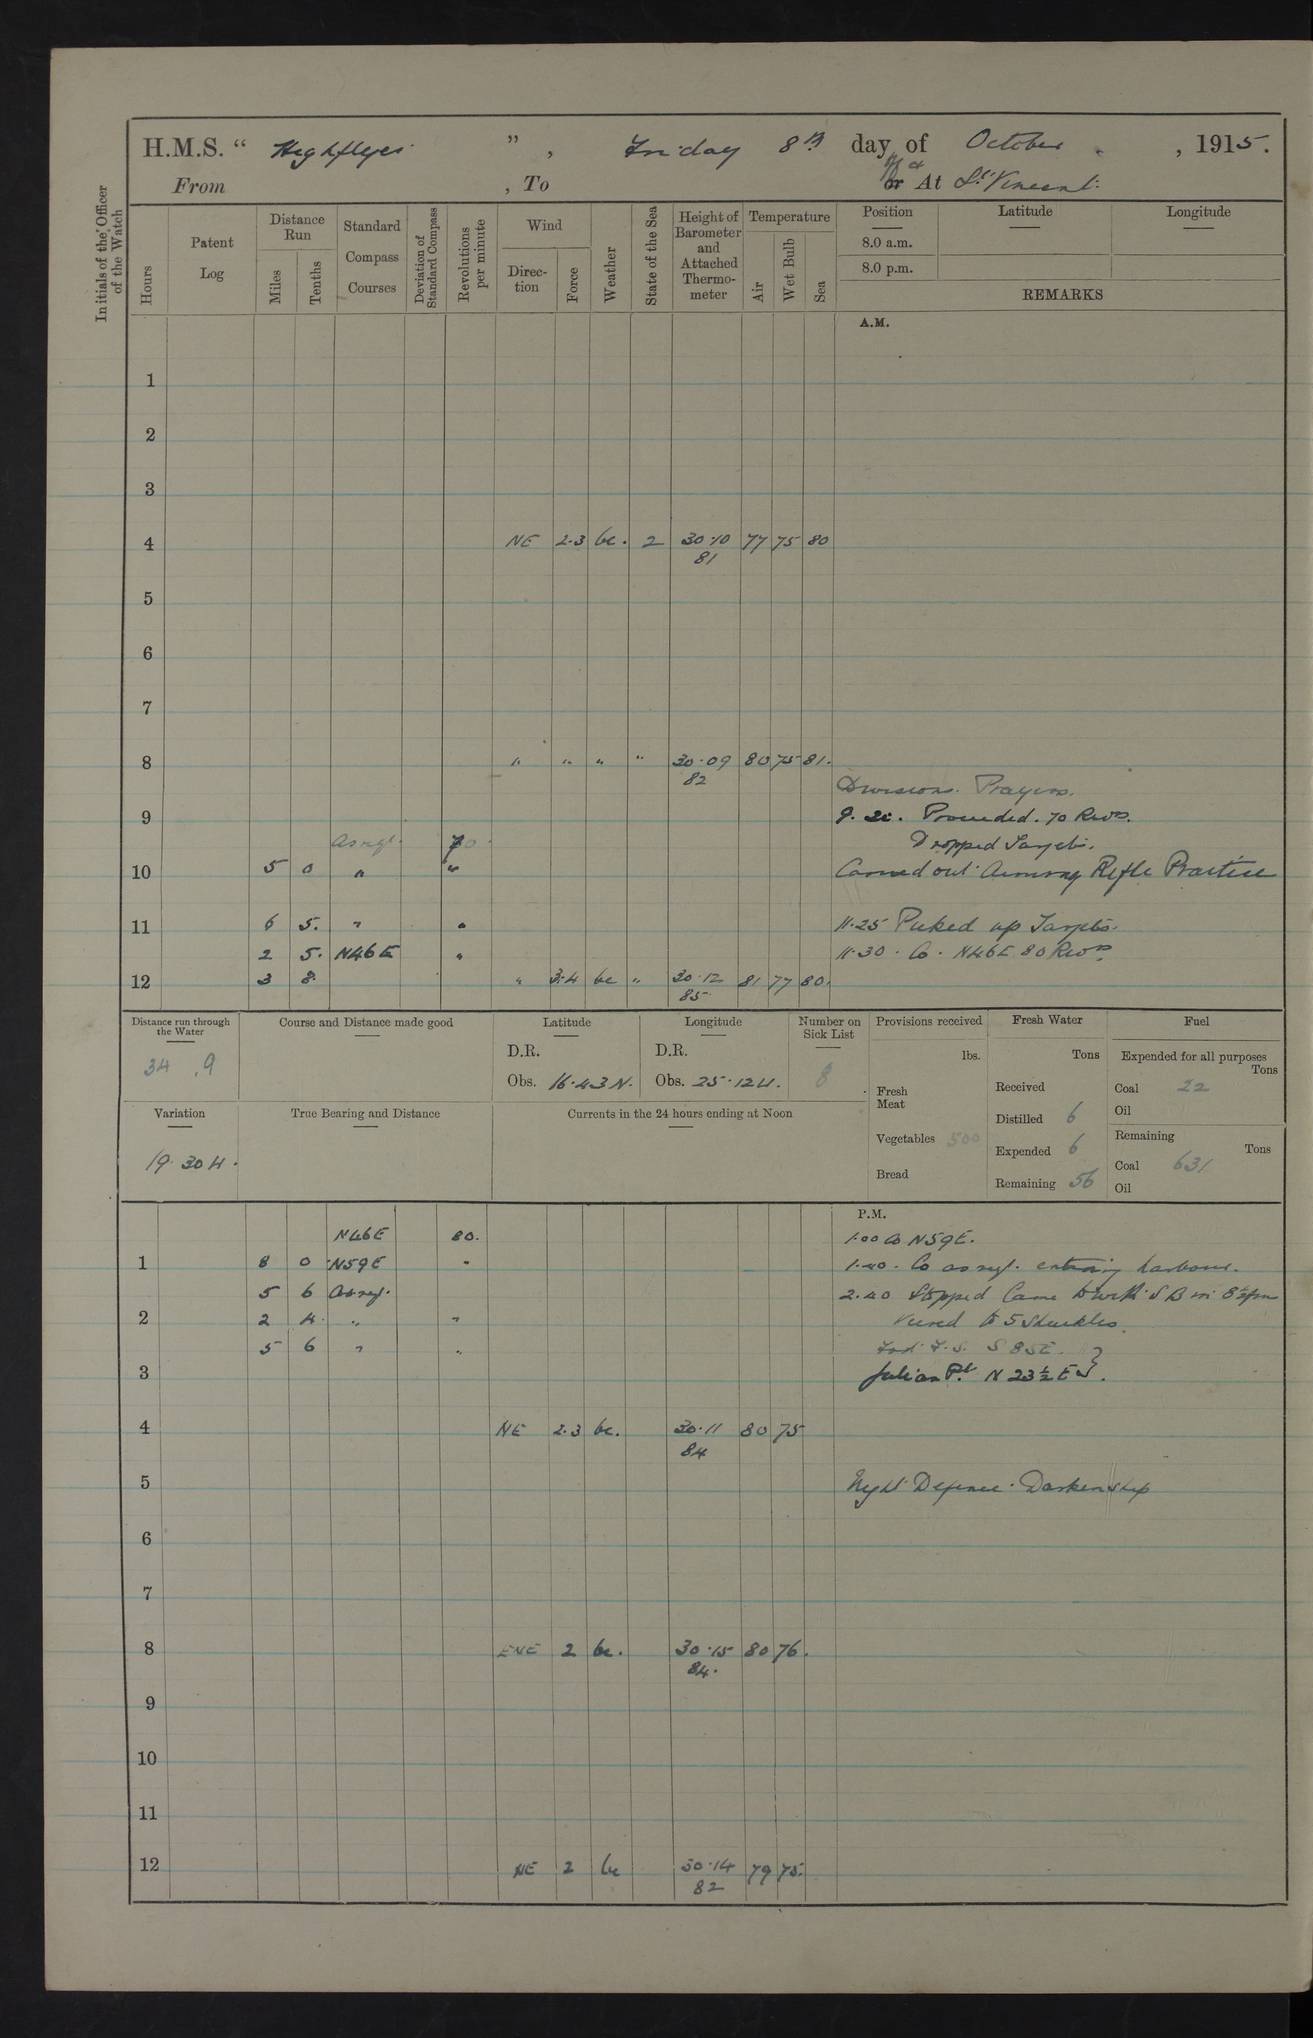 H.M.S. " Highflyer ", Friday 8th day of October, 1915.
From , To or At St Vincent.
Initials of the Officer of the Watch
Hours
Patent Log
Distance Run
Miles
Tenths
Standard Compass Courses
Deviation of Standard Compass
Revolutions per minute
Wind
Direction
Force
Weather
State of the Sea
Height of Barometer and Attached Thermometer
Temperature
Air
Wet Bulb
Sea
Position
8.0 a.m.
8.0 p.m.
Latitude
Longitude
REMARKS
A.M.
1
2
3
4 NE 2.3 bc. 2 30.10 77 75 80
81
5
6
7
8 " " " " 30.09 80 75 81.
82
Divisions. Prayers.
9 9. 20. Proceeded. 70 Revs.
As reqt. 70. Dropped Targets.
10 5 0 " " Carried out Aiming Rifle Practice
11 6 5. " " 11.25 Picked up Targets.
2 5. N46E " 11.30. Co. N46E 80 Revs.
12 3 8. " 3.4 bc " 30.12 81 77 80.
85.
Distance run through the Water
34 .9
Course and Distance made good
Latitude
D.R.
Obs. 16.43 N.
Longitude
D.R.
Obs. 25.12 W.
Number on Sick List
8
Provisions received
lbs.
Fresh Meat
Vegetables 500
Bread
Fresh Water
Tons
Received
Distilled 6
Expended 6
Remaining 56
Fuel
Expended for all purposes
Tons
Coal 22
Oil
Remaining
Tons
Coal 631
Oil
Variation
19.30 W.
True Bearing and Distance
Currents in the 24 hours ending at Noon
P.M.
N46E 80. 1.00 Co N59E.
1 8 0 N59E " 1.40. Co as reqt. entering harbour.
5 6 As reqt. 2.40 Stopped Came to with SB in 8½ fm
2 2 4. " " Veered to 5 Shackles.
5 6 " " S 85E. }
3 Julian Pt. N 23½ E }.
4 NE 2.3 bc. 30.11 80 75
84
5 Night Defence. Darken ship
6
7
8 ENE 2 bc. 30.15 80 76.
84.
9
10
11
12 NE 2 bc 30.14 79 75.
82